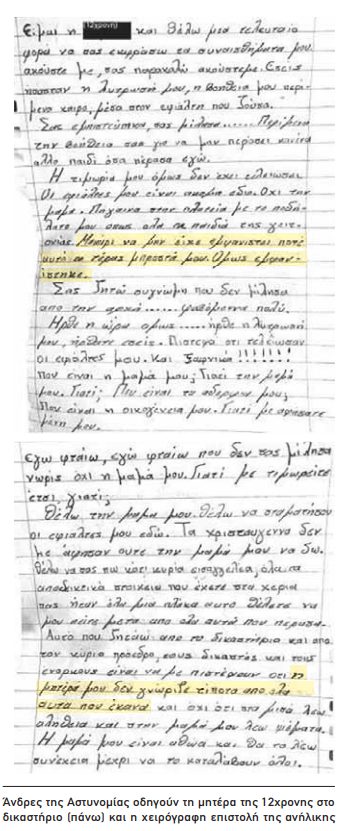 Είμαι η 12χρονη και θέλω μια τελευταία
φορά να σας εκφράσω τα συναισθήματα μου.
ακούστε με, σας παρακαλώ ακούστεμε. Εσείς
ήσασταν η λύτρωσή μου, η βοήθεια μου περί-
μενα καιρό, μέσα στον εφιάλτη που ζούσα.
Σας εμπιστεύτικα, σας μίλησα...... Περίμενα
την βοήθεια σας για να μην περάσει κανένα
άλλο παιδί όσα πέρασα εγώ.
Η τιμωρία μου όμως δεν έχει τελειώσει.
Οι εφιάλτες μου είναι ακόμα εδώ. Όχι την
μαμά. Πήγαινα στην πλατεία με το ποδή-
λατο μου όπως όλα τα παιδιά της γειτ-
ονιάς. Μακάρι να μην είχε εμφανιστεί ποτέ
αυτό το τέρας μπροστά μου. Όμως εμφαν-
ίστηκε.
Σας ζητώ συγνώμη που δεν μίλησα
από την αρχή...... φοβόμουνα πολύ.
Ήρθε η ώρα όμως...... ήρθε η λύτρωσή
μου, ήρθατε εσείς. Πίστεψα ότι τελείωσαν
οι εφιάλτες μου. Και ξαφνικά !!!!!!!
που είναι η μαμά μου; Γιατί την μαμά
μου. Γιατί; Που είναι τα αδέρφια μου;
Που είναι η οικογένεια μου. Γιατί με αφήσατε
μόνη μου.
Εγώ φταίω, εγώ φταίω που δεν σας μίλησα
νωρίς όχι η μαμά μου. Γιατί με τιμωρείτε
έτσι, γιατί;
Θέλω την μαμά μου. Θέλω να σταματήσου
οι εφιάλτες μου εδώ. Τα χριστούγεννα δεν
με άφησαν ούτε την μαμά μου να δω.
Θέλω να σας πω κάτι κυρία εισαγγελέα, όλα τα
αποδεικτικά στοιχεία που έχετε στα χέρια
σας ήταν όλα μια πλάκα αυτό θέλετε να
μου πείτε μετά από όλα αυτά που πέρασα.
Αυτό που ζητάω από το δικαστήριο και από
τον κύριο πρόεδρο, τους δικαστές και τους
ενόρκους είναι να με πιστέψουν ότι η
μητέρα μου δεν γνώριζε τίποτα από όλα
αυτά που έκανα και όχι ότι στα μισά λέω
αλήθεια και στην μαμά μου λέω ψέματα.
Η μαμά μου είναι αθώα και θα το λέω
συνέχεια μέχρι να το καταλάβουν όλοι.
Άνδρες της Αστυνομίας οδηγούν τη μητέρα της 12χρονης στο
δικαστήριο (πάνω) και η χειρόγραφη επιστολή της ανήλικης